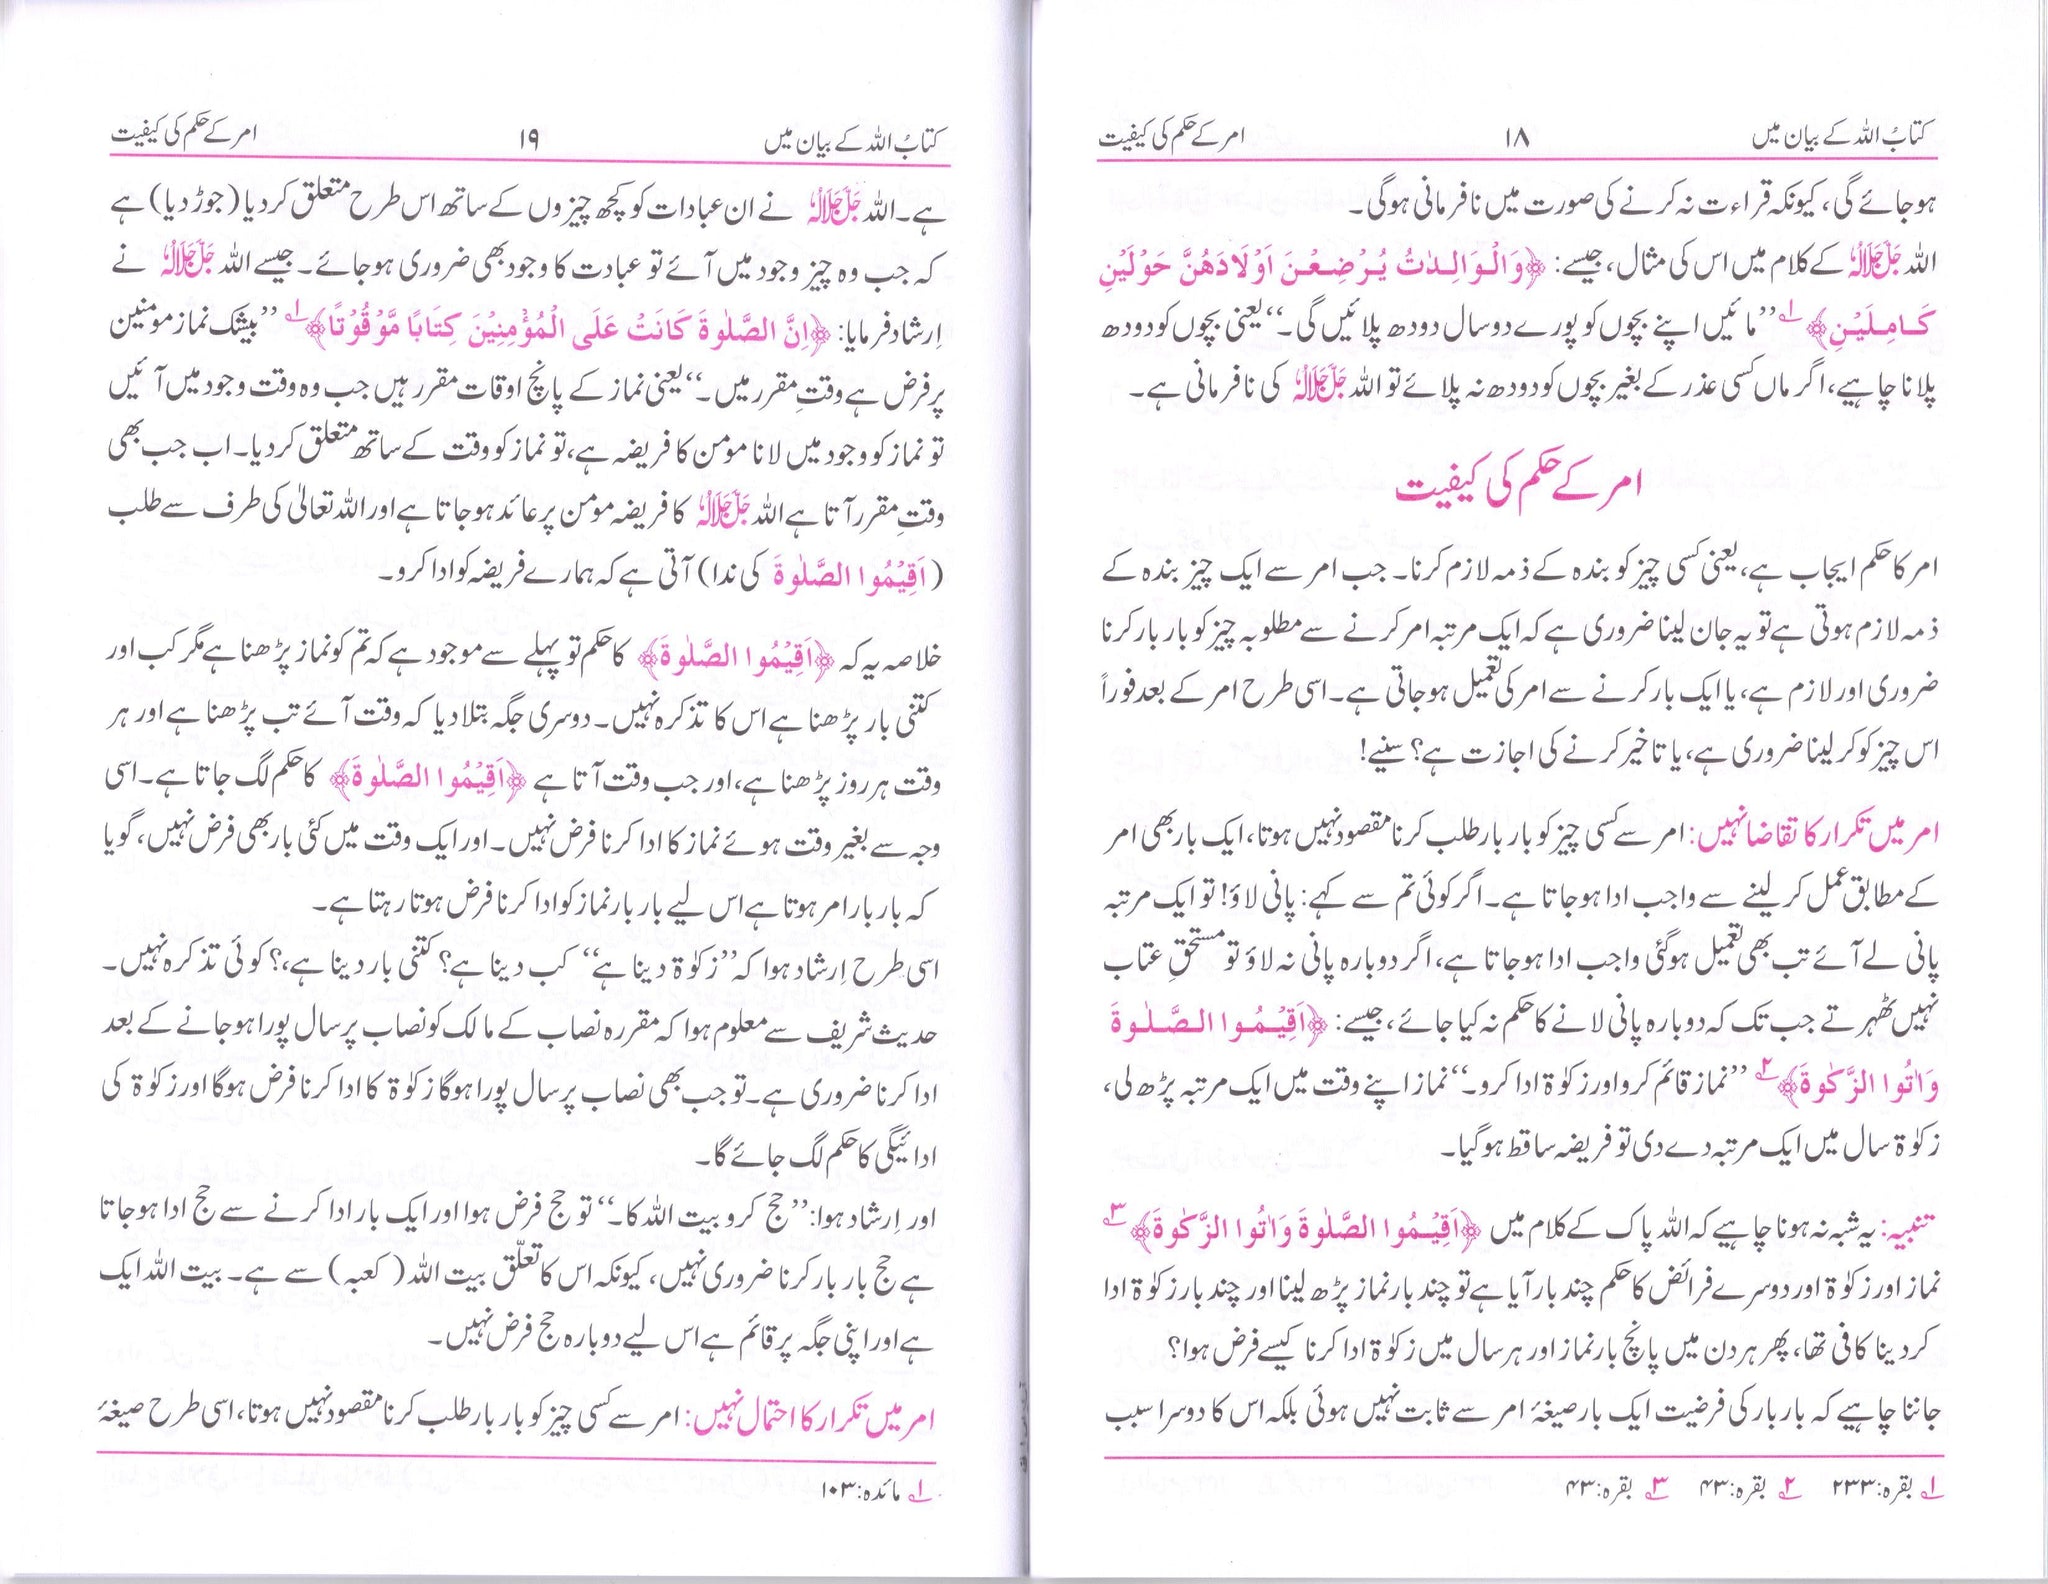 کتابُ اللہ کے بیان میں ۱۸ امر کے حکم کی کیفیت
ہوجائے گی، کیونکہ قراءت نہ کرنے کی صورت میں نافرمانی ہوگی۔
اللہ جَلَّ جَلَالُہٗ کے کلام میں اس کی مثال، جیسے: ﴿وَالْوَالِدٰتُ یُرْضِعْنَ اَوْلَادَهُنَّ حَوْلَیْنِ
کَامِلَیْنِ﴾۱؎ ”مائیں اپنے بچوں کو پورے دو سال دودھ پلائیں گی۔“ یعنی بچوں کو دودھ
پلانا چاہیے، اگر ماں کسی عذر کے بغیر بچوں کو دودھ نہ پلائے تو اللہ جَلَّ جَلَالُہٗ کی نافرمانی ہے۔
امر کے حکم کی کیفیت
امر کا حکم ایجاب ہے، یعنی کسی چیز کو بندہ کے ذمہ لازم کرنا۔ جب امر سے ایک چیز بندہ کے
ذمہ لازم ہوتی ہے تو یہ جان لینا ضروری ہے کہ ایک مرتبہ امر کرنے سے مطلوبہ چیز کو بار بار کرنا
ضروری اور لازم ہے، یا ایک بار کرنے سے امر کی تعمیل ہوجاتی ہے۔ اسی طرح امر کے بعد فوراً
اس چیز کو کرلینا ضروری ہے، یا تاخیر کرنے کی اجازت ہے؟ سنیے!
امر میں تکرار کا تقاضا نہیں: امر سے کسی چیز کو بار بار طلب کرنا مقصود نہیں ہوتا، ایک بار بھی امر
کے مطابق عمل کر لینے سے واجب ادا ہوجاتا ہے۔ اگر کوئی تم سے کہے: پانی لاؤ! تو ایک مرتبہ
پانی لے آئے تب بھی تعمیل ہوگئی واجب ادا ہوجاتا ہے، اگر دوبارہ پانی نہ لاؤ تو مستحقِ عتاب
نہیں ٹھہرتے جب تک کہ دوبارہ پانی لانے کا حکم نہ کیا جائے، جیسے: ﴿اَقِیْمُوا الصَّلٰوةَ
وَاٰتُوا الزَّکٰوةَ﴾۲؎ ”نماز قائم کرو اور زکوٰۃ ادا کرو۔“ نماز اپنے وقت میں ایک مرتبہ پڑھ لی،
زکوٰۃ سال میں ایک مرتبہ دے دی تو فریضہ ساقط ہوگیا۔
تنبیہ: یہ شبہ نہ ہونا چاہیے کہ اللہ پاک کے کلام میں ﴿اَقِیْمُوا الصَّلٰوةَ وَاٰتُوا الزَّکٰوةَ﴾۳؎
نماز اور زکوٰۃ اور دوسرے فرائض کا حکم چند بار آیا ہے تو چند بار نماز پڑھ لینا اور چند بار زکوٰۃ ادا
کردینا کافی تھا، پھر ہر دن میں پانچ بار نماز اور ہر سال میں زکوٰۃ ادا کرنا کیسے فرض ہوا؟
جاننا چاہیے کہ بار بار کی فرضیت ایک بار صیغۂ امر سے ثابت نہیں ہوئی بلکہ اس کا دوسرا سبب
۱؎ بقرہ: ۲۳۳ ۲؎ بقرہ: ۴۳ ۳؎ بقرہ: ۴۳
کتابُ اللہ کے بیان میں ۱۹ امر کے حکم کی کیفیت
ہے۔ اللہ جَلَّ جَلَالُہٗ نے ان عبادات کو کچھ چیزوں کے ساتھ اس طرح متعلق کردیا (جوڑ دیا) ہے
کہ جب وہ چیز وجود میں آئے تو عبادت کا وجود بھی ضروری ہوجائے۔ جیسے اللہ جَلَّ جَلَالُہٗ نے
اِرشاد فرمایا: ﴿اِنَّ الصَّلٰوةَ کَانَتْ عَلَی الْمُؤْمِنِیْنَ کِتَابًا مَّوْقُوْتًا﴾۱؎ ”بیشک نماز مومنین
پر فرض ہے وقتِ مقرر میں۔“ یعنی نماز کے پانچ اوقات مقرر ہیں جب وہ وقت وجود میں آئیں
تو نماز کو وجود میں لانا مومن کا فریضہ ہے، تو نماز کو وقت کے ساتھ متعلق کردیا۔ اب جب بھی
وقتِ مقرر آتا ہے اللہ جَلَّ جَلَالُہٗ کا فریضہ مومن پر عائد ہوجاتا ہے اور اللہ تعالیٰ کی طرف سے طلب
(اَقِیْمُوا الصَّلٰوةَ کی ندا) آتی ہے کہ ہمارے فریضہ کو ادا کرو۔
خلاصہ یہ کہ ﴿اَقِیْمُوا الصَّلٰوةَ﴾ کا حکم تو پہلے سے موجود ہے کہ تم کو نماز پڑھنا ہے مگر کب اور
کتنی بار پڑھنا ہے اس کا تذکرہ نہیں۔ دوسری جگہ بتلادیا کہ وقت آئے تب پڑھنا ہے اور ہر
وقت ہر روز پڑھنا ہے، اور جب وقت آتا ہے ﴿اَقِیْمُوا الصَّلٰوةَ﴾ کا حکم لگ جاتا ہے۔ اسی
وجہ سے بغیر وقت ہوئے نماز کا ادا کرنا فرض نہیں۔ اور ایک وقت میں کئی بار بھی فرض نہیں، گویا
کہ بار بار امر ہوتا ہے اس لیے بار بار نماز کو ادا کرنا فرض ہوتا رہتا ہے۔
اسی طرح اِرشاد ہوا کہ ”زکوٰۃ دینا ہے“ کب دینا ہے؟ کتنی بار دینا ہے،؟ کوئی تذکرہ نہیں۔
حدیث شریف سے معلوم ہوا کہ مقررہ نصاب کے مالک کو نصاب پر سال پورا ہوجانے کے بعد
ادا کرنا ضروری ہے۔ تو جب بھی نصاب پر سال پورا ہوگا زکوٰۃ کا ادا کرنا فرض ہوگا اور زکوٰۃ کی
ادائیگی کا حکم لگ جائے گا۔
اور اِرشاد ہوا: ”حج کرو بیت اللہ کا۔“ تو حج فرض ہوا اور ایک بار ادا کرنے سے حج ادا ہوجاتا
ہے حج بار بار کرنا ضروری نہیں، کیونکہ اس کا تعلّق بیت اللہ (کعبہ) سے ہے۔ بیت اللہ ایک
ہے اور اپنی جگہ پر قائم ہے اس لیے دوبارہ حج فرض نہیں۔
امر میں تکرار کا احتمال نہیں: امر سے کسی چیز کو بار بار طلب کرنا مقصود نہیں ہوتا، اسی طرح صیغۂ
۱؎ مائدہ: ۱۰۳